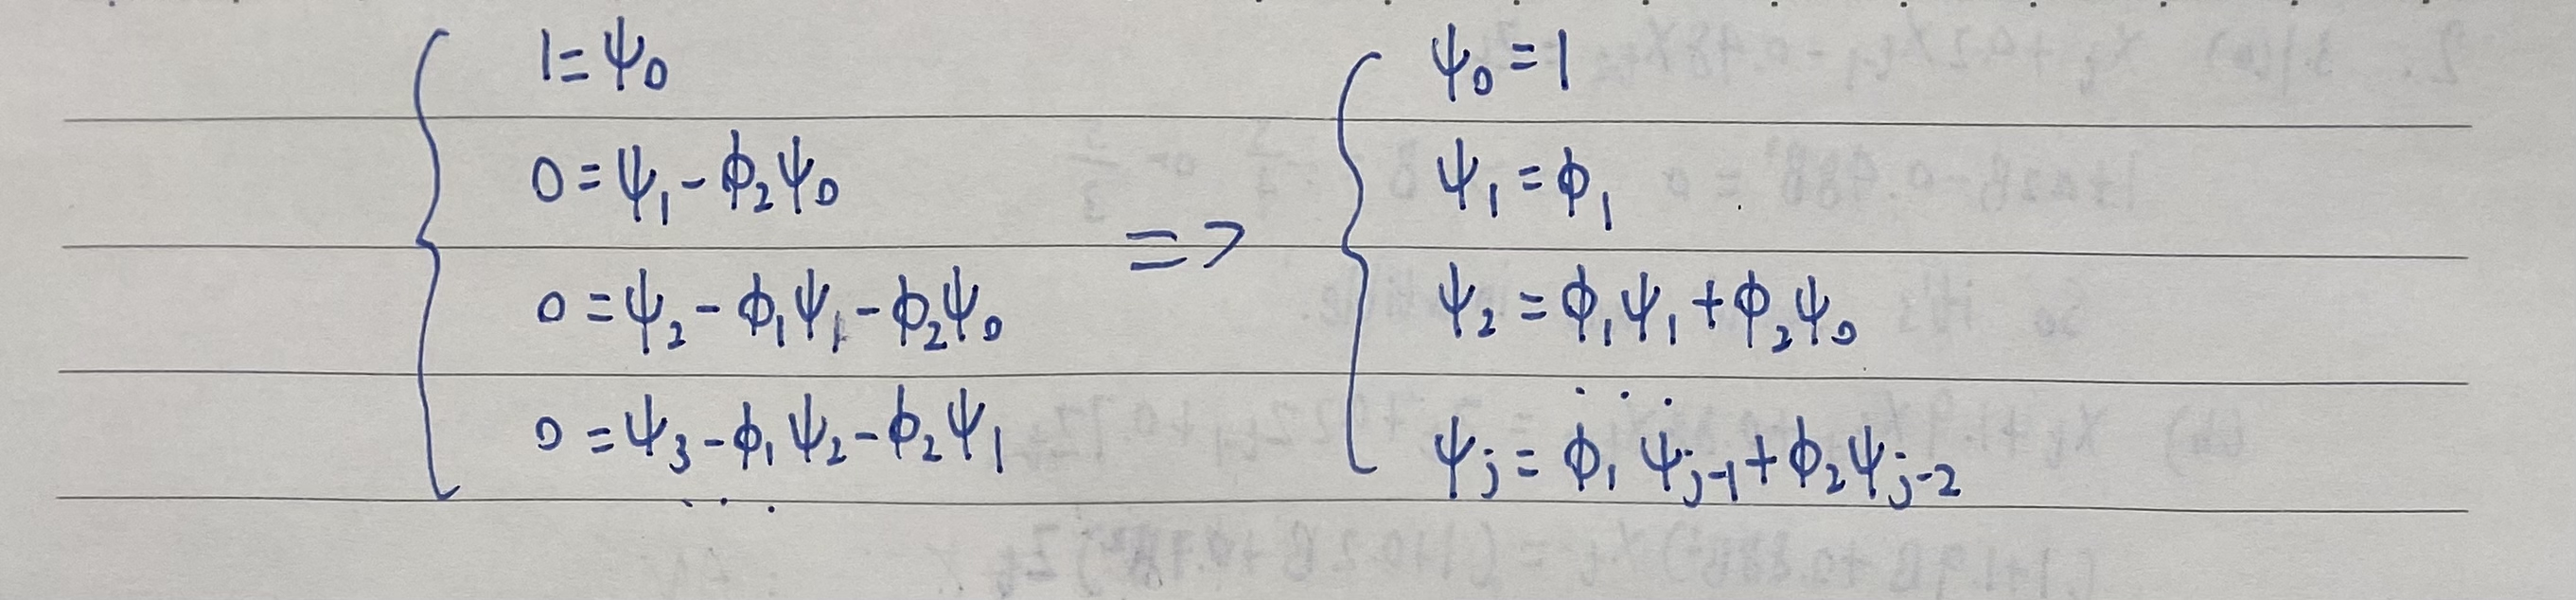 1=ψ₀
0=ψ₁-ϕ₂ψ₀
0=ψ₂-ϕ₁ψ₁-ϕ₂ψ₀
0=ψ₃-ϕ₁ψ₂-ϕ₂ψ₁
...
=>
ψ₀=1
ψ₁=ϕ₁
ψ₂=ϕ₁ψ₁+ϕ₂ψ₀
...
ψⱼ=ϕ₁ψⱼ₋₁+ϕ₂ψⱼ₋₂